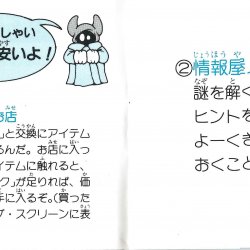 しゃい
安いよ!
お店
」と交換にアイテム
るんだ。お店に入っ
イテムに触れると、
ク」が足りれば、価
手に入るぞ。(買った
ブ・スクリーンに表
②情報屋
謎を解く
ヒントを
よーくき
おくこと